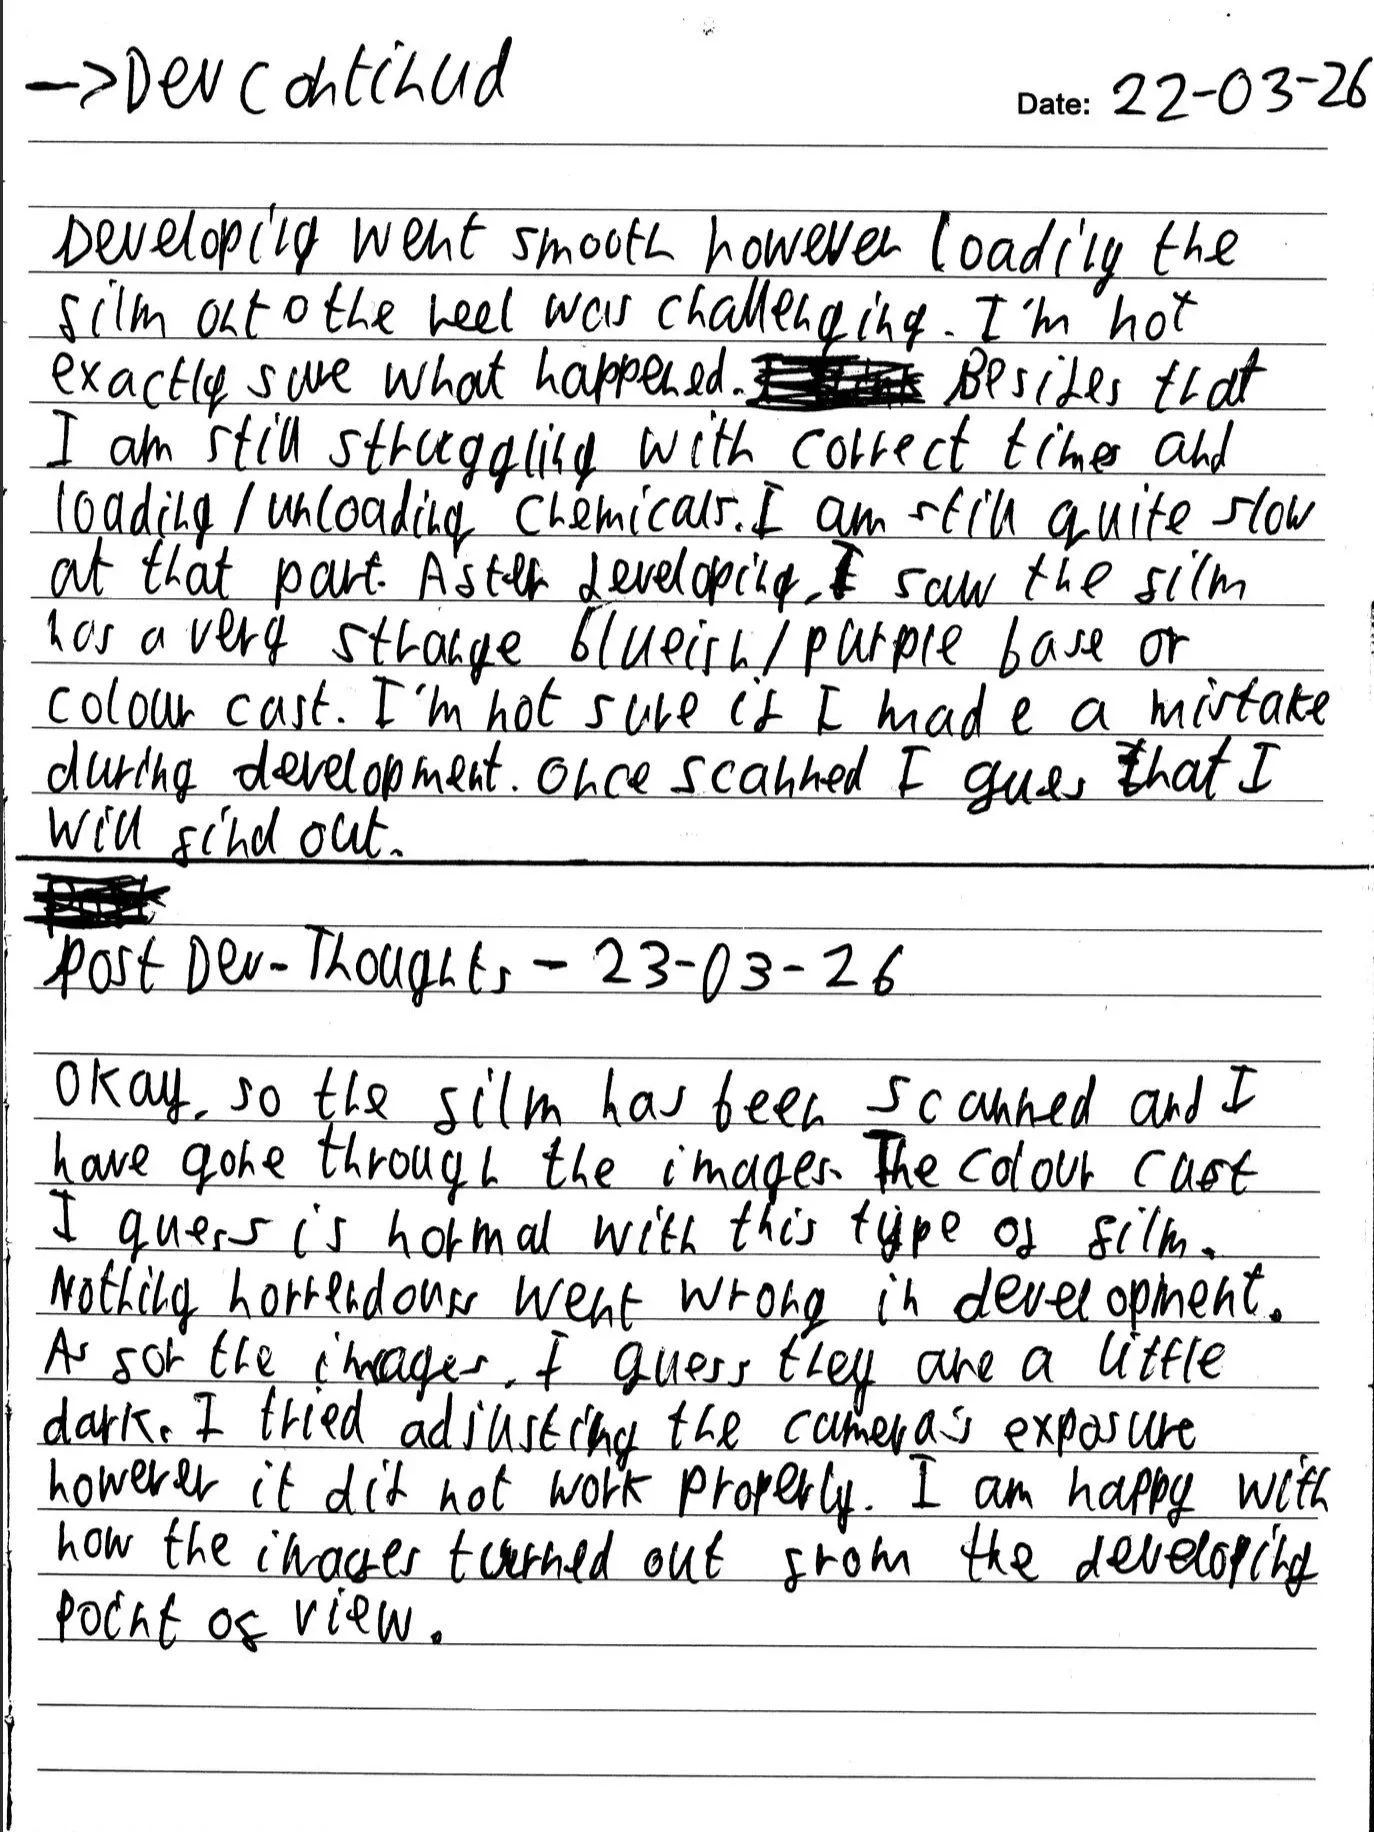 ->Dev continud
Date: 22-03-26
Developing went smooth however loading the
film onto the reel was challenging. I'm not
exactly sure what happened. Besides that
I am still struggling with correct times and
loading/unloading chemicals. I am still quite slow
at that part. After developing, I saw the film
has a very strange blueish/purple base or
colour cast. I'm not sure if I made a mistake
during development. Once scanned I gues that I
will find out.
Post Dev-Thoughts - 23-03-26
Okay, so the film has been scanned and I
have gone through the images. The colour cast
I guess is normal with this type of film.
Nothing horrendous went wrong in development.
As for the images, I guess they are a little
dark. I tried adjusting the camera's exposure
however it did not work properly. I am happy with
how the images turned out from the developing
point of view.